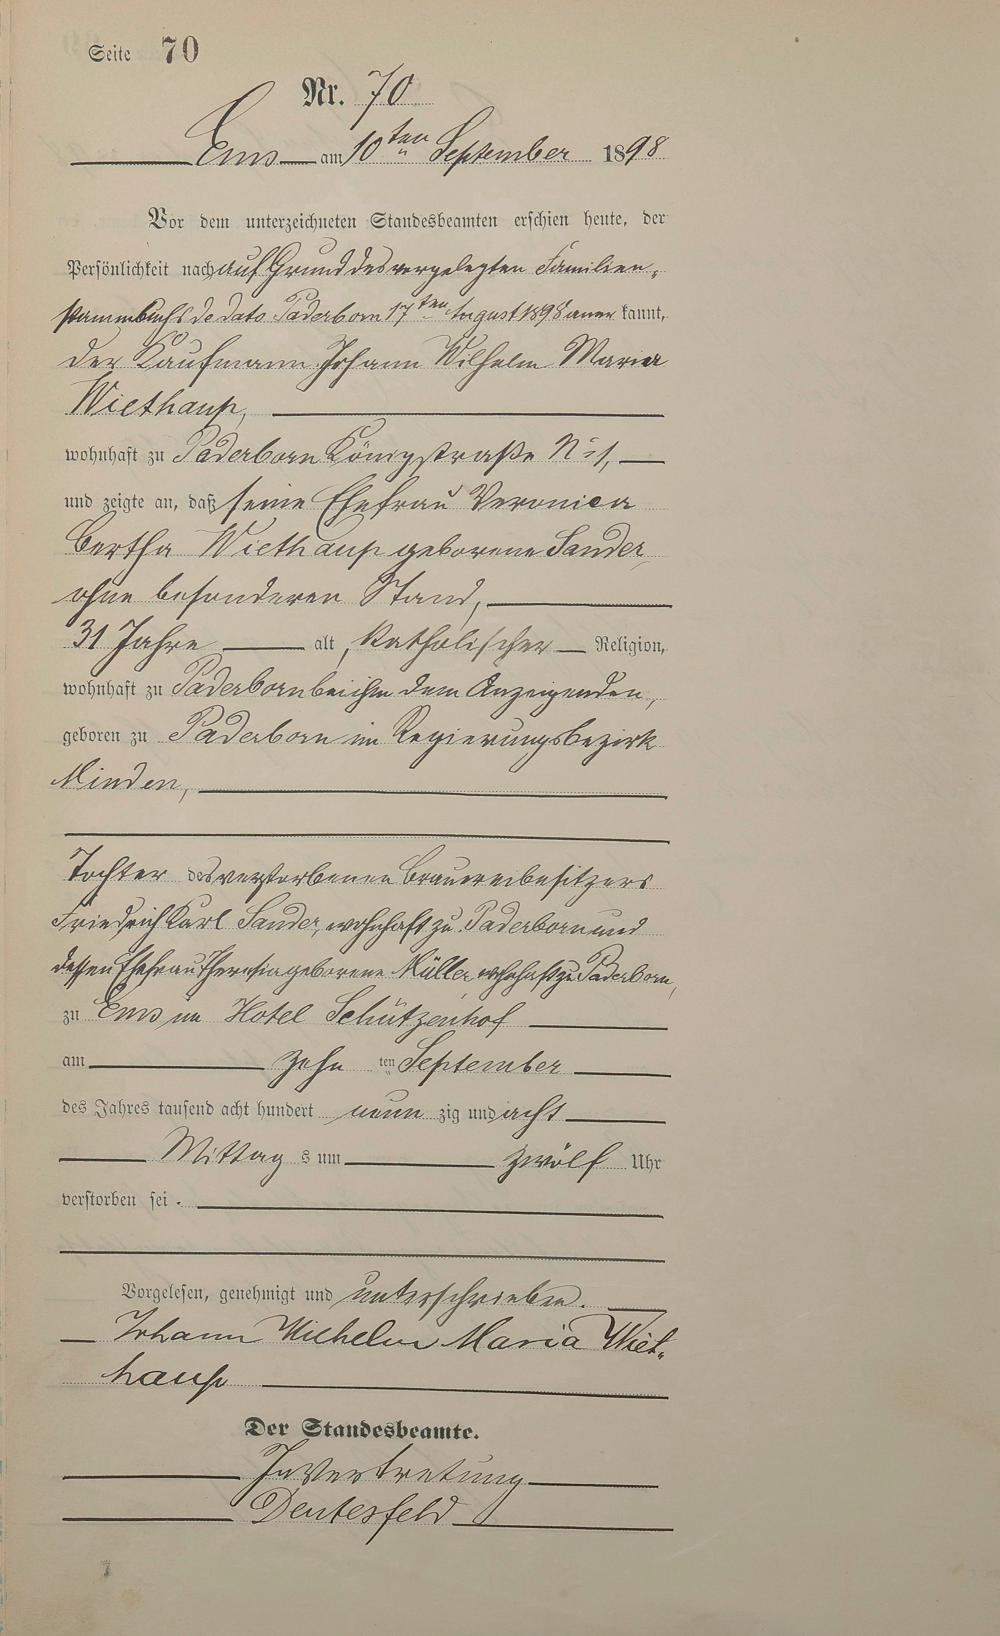 Seite 70
Nr. 70
Ems am 10ten September 1898
Vor dem unterzeichneten Standesbeamten erschien heute, der
Persönlichkeit nach auf Grund des vorgelegten Familien-
stammbuchs de dato Paderborn 17ten August 1898 aner kannt,
der Kaufmann Johann Wilhelm Maria
Wiethaup,
wohnhaft zu Paderborn Königstraße No 1,
und zeigte an, daß seine Ehefrau Veronica
Bertha Wiethaup geborene Sander,
ohne besonderen Stand,
31 Jahre alt, katholischer Religion,
wohnhaft zu Paderborn bei ihm dem Anzeigenden,
geboren zu Paderborn im Regierungsbezirk
Minden,
Tochter des verstorbenen Brauereibesitzers
Friedrich Karl Sander, wohnhaft zu Paderborn und
dessen Ehefrau Theresia geborene Müller wohnhaft zu Paderborn,
zu Ems im Hotel Schützenhof
am zehn ten September
des Jahres tausend acht hundert neun zig und acht
Mittag s um zwölf Uhr
verstorben sei.
Vorgelesen, genehmigt und unterschrieben.
Johann Wilhelm Maria Wiet-
haup
Der Standesbeamte.
In Vertretung